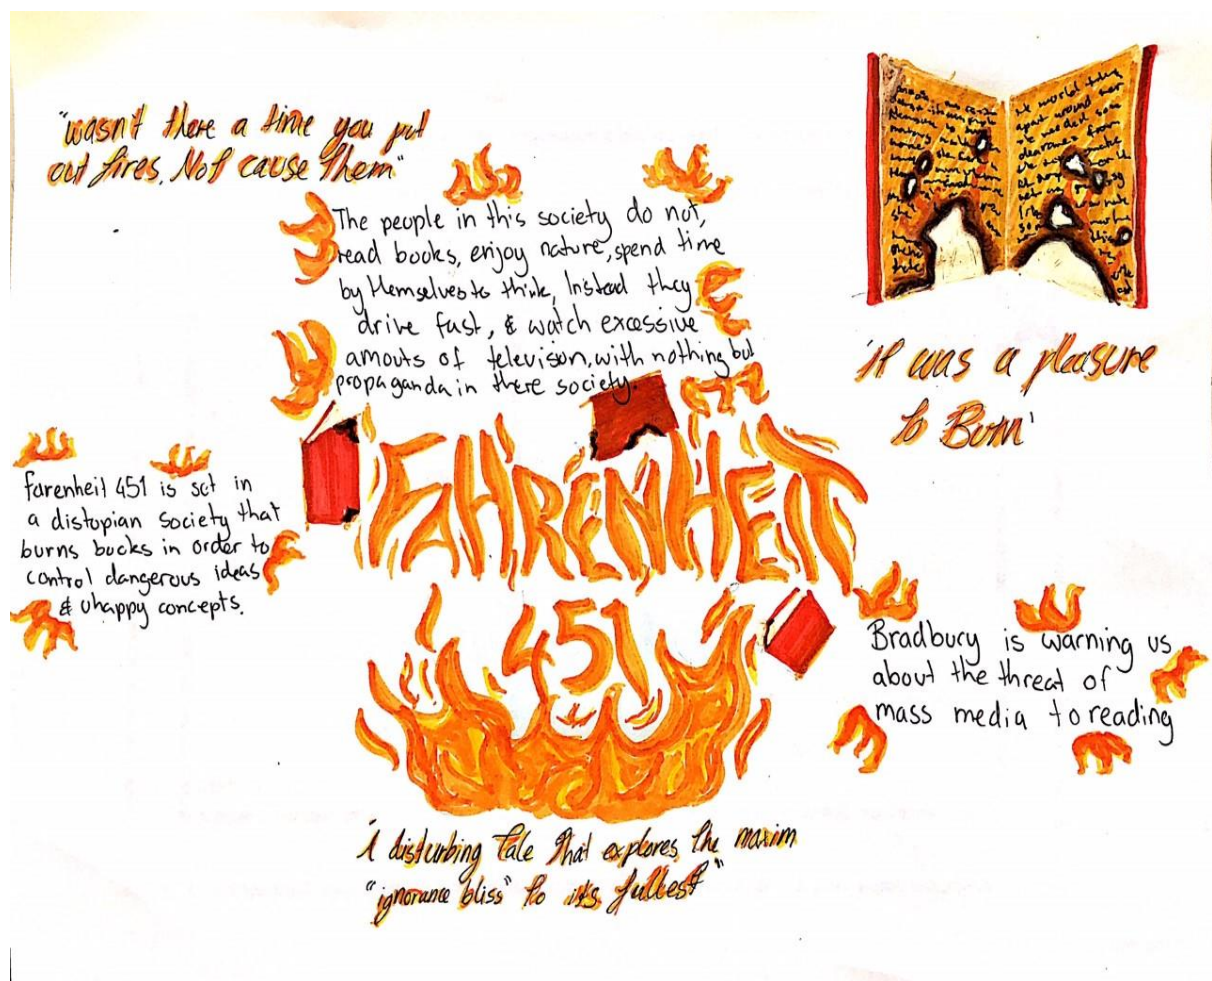 "wasn't there a time you put
out fires. Not cause them"
The people in this society do not,
read books, enjoy nature, spend time
by themselves to think, Instead they
drive fast, & watch excessive
amouts of televison, with nothing but
propaganda in there society.
'it was a pleasure
to Burn'
FAHRENHEIT
451
farenheit 451 is set in
a distopian society that
burns books in order to
control dangerous ideas
& uhappy concepts.
Bradbury is warning us
about the threat of
mass media to reading
'A disturbing tale that explores the maxim
"ignorance bliss" to its fullest"